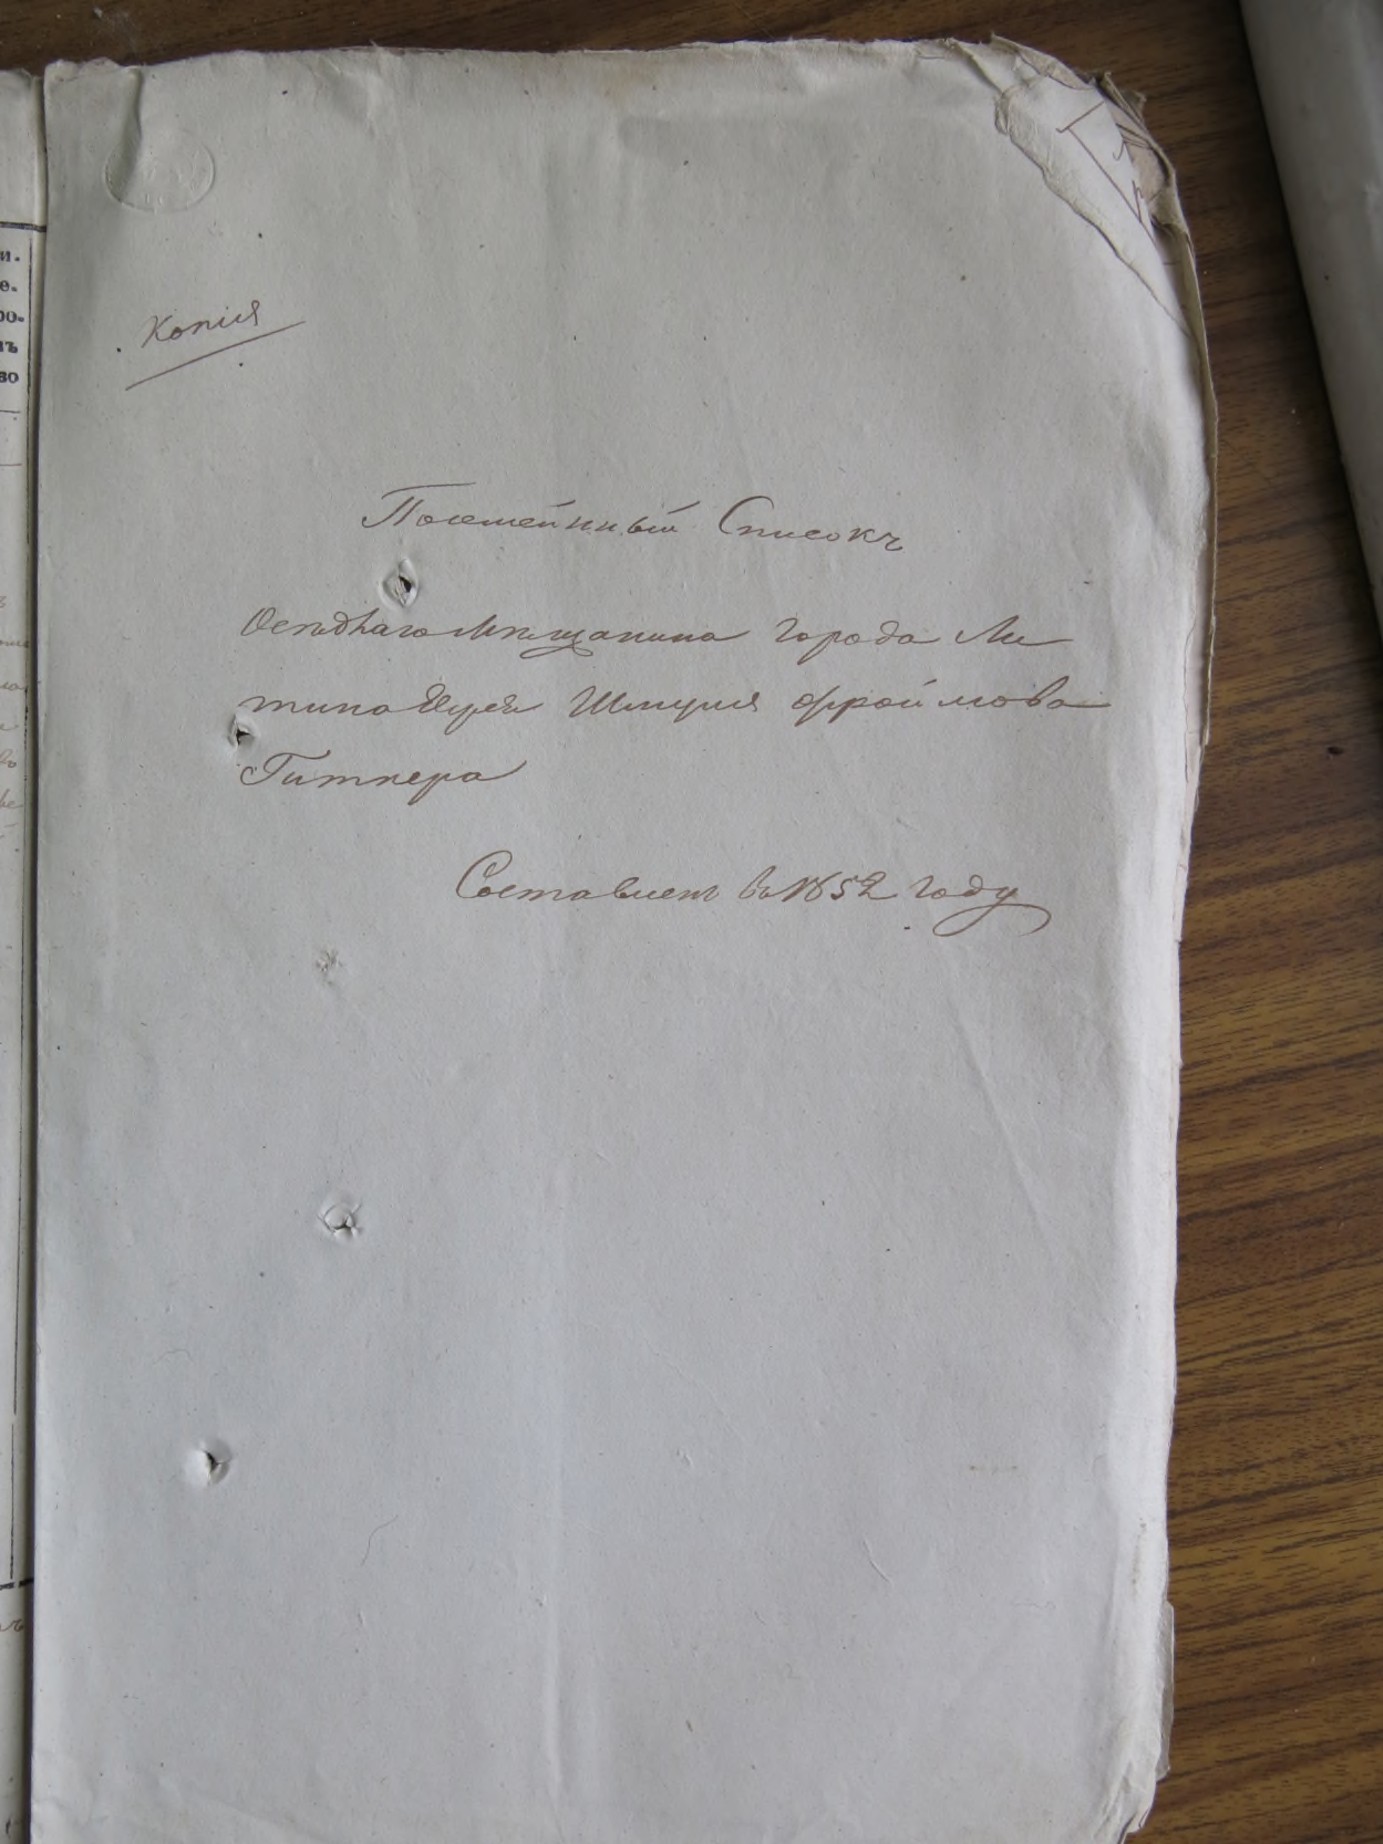 Копія
Посемейный Списокъ
Осѣдлаго Мѣщанина Города Ли
тина Шмуля Фроймова
Гитнера
Составленъ въ 1852 году
и.
е.
ро.
ъ
во